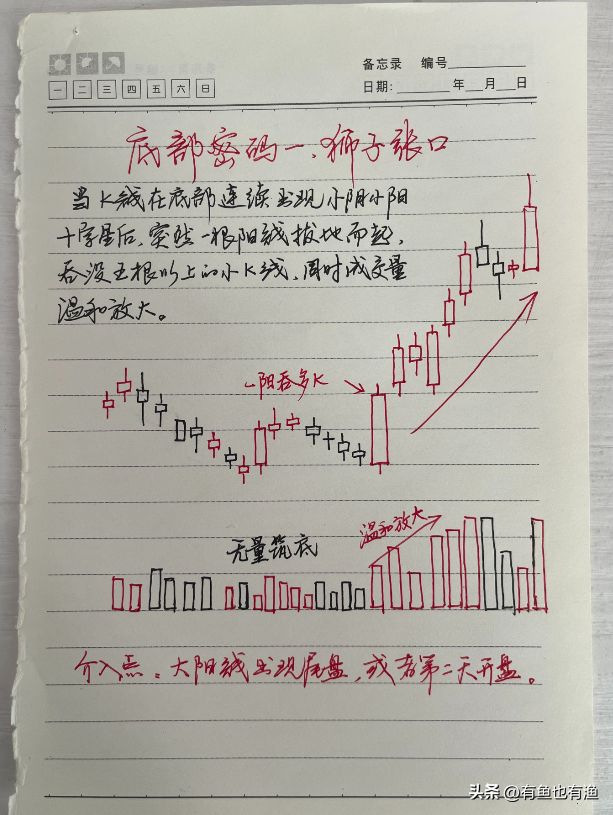 备忘录 编号
一 二 三 四 五 六 日
日期: 年 月 日
底部密码一、狮子张口
当K线在底部连续出现小阴小阳
十字星后,突然一根阳线拔地而起,
吞没五根以上的小K线,同时成交量
温和放大。
一阳吞多K
温和放大
无量筑底
介入点。大阳线出现尾盘,或者第二天开盘。
头条 @有鱼也有渔